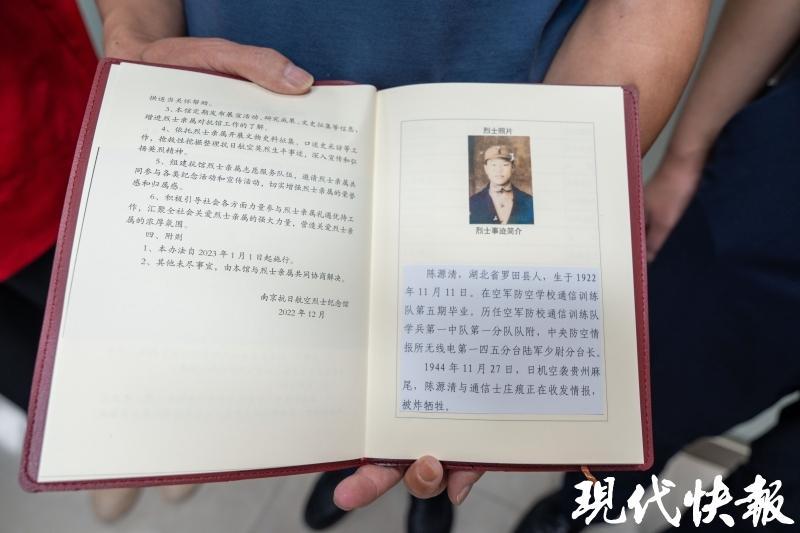 供适当关怀帮助。
3、本馆定期发布展宣活动、研究成果、文史征集等信息，
增进烈士亲属对抗馆工作的了解。
4、依托烈士亲属开展文物史料征集、口述史采访等工
作，抢救性挖掘整理抗日航空英烈生平事迹，深入宣传和弘
扬英烈精神。
5、组建抗馆烈士亲属志愿服务队伍，邀请烈士亲属共
同参与各类纪念活动和宣传活动，切实增强烈士亲属的荣誉
感和归属感。
6、积极引导社会各方面力量参与烈士亲属礼遇优待工
作，汇聚全社会关爱烈士亲属的强大力量，营造关爱烈士亲
属的浓厚氛围。
四、附则
1、本办法自2023年1月1日起施行。
2、其他未尽事宜，由本馆与烈士亲属共同协商解决。
南京抗日航空烈士纪念馆
2022年12月
烈士照片
烈士事迹简介
陈源清，湖北省罗田县人，生于1922
年11月11日。在空军防空学校通信训练
队第五期毕业。历任空军防校通信训练队
学兵第一中队第一分队队附，中央防空情
报所无线电第一四五分台陆军少尉分台长。
1944年11月27日，日机空袭贵州麻
尾，陈源清与通信士庄痕正在收发情报，
被炸牺牲。
现代快報